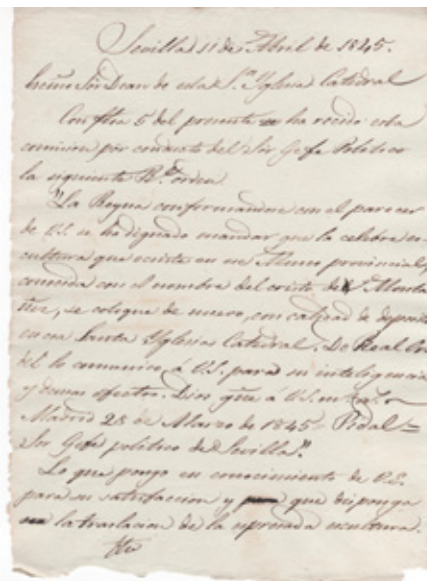 Sevilla 11 de Abril de 1845.
Sor Dean de esta Sta Yglesia Catedral
Con fha 5 del presente ha recido esta
comision por conducto del Sor Gefe Politico
la siguiente Rl orden.
"La Reyna conformandose con el parecer
de V.S. se ha dignado mandar que la celebre es-
cultura que ecsiste en ese Museo provincial y
conocida con el nombre del cristo de Monta
ñes, se coloque de nuevo, con calidad de deposito
en esa Santa Yglesia Catedral. De Real Or
del lo comunico á V.S. para su inteligencia
y demas efectos. Dios gue á V.S. m. as.
Madrid 28 de Marzo de 1845 = Pidal =
Sor Gefe politico de Sevilla".
Lo que pongo en conocimiento de V.S.
para su satisfaccion y que disponga
la traslacion de la espresada escultura.